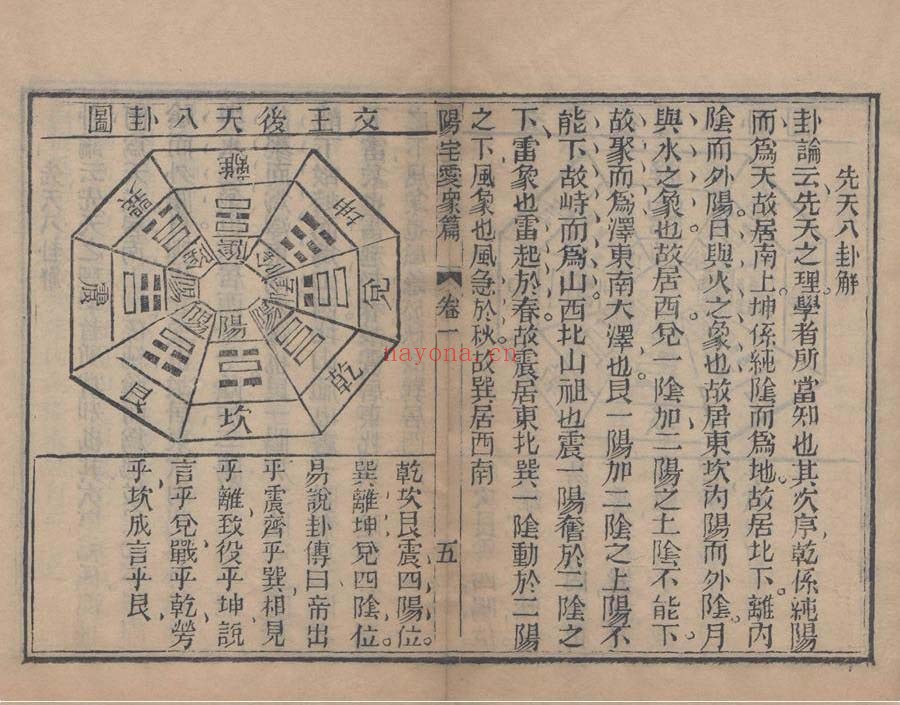 先天八卦解
卦論云先天之理學者所當知也其次序乾係純陽
而爲天故居南上坤係純陰而爲地故居北下離內
陰而外陽日與火之象也故居東坎內陽而外陰月
與水之象也故居西兌一陰加二陽之上陰不能下
故聚而爲澤東南大澤也艮一陽加二陰之上陽不
能下故峙而爲山西北山祖也震一陽奮於二陰之
下雷象也雷起於春故震居東北巽一陰動於二陽
之下風象也風急於秋故巽居西南
陽宅愛衆篇 卷一 五
文王後天八卦圖
離
坤
兌
乾
坎
艮
震
巽
陰
陰
陰
陽
陽
陽
陽
陰
乾坎艮震四陽位
巽離坤兌四陰位
易說卦傳曰帝出
乎震齊乎巽相見
乎離致役乎坤說
言乎兌戰乎乾勞
乎坎成言乎艮
nayona.cn